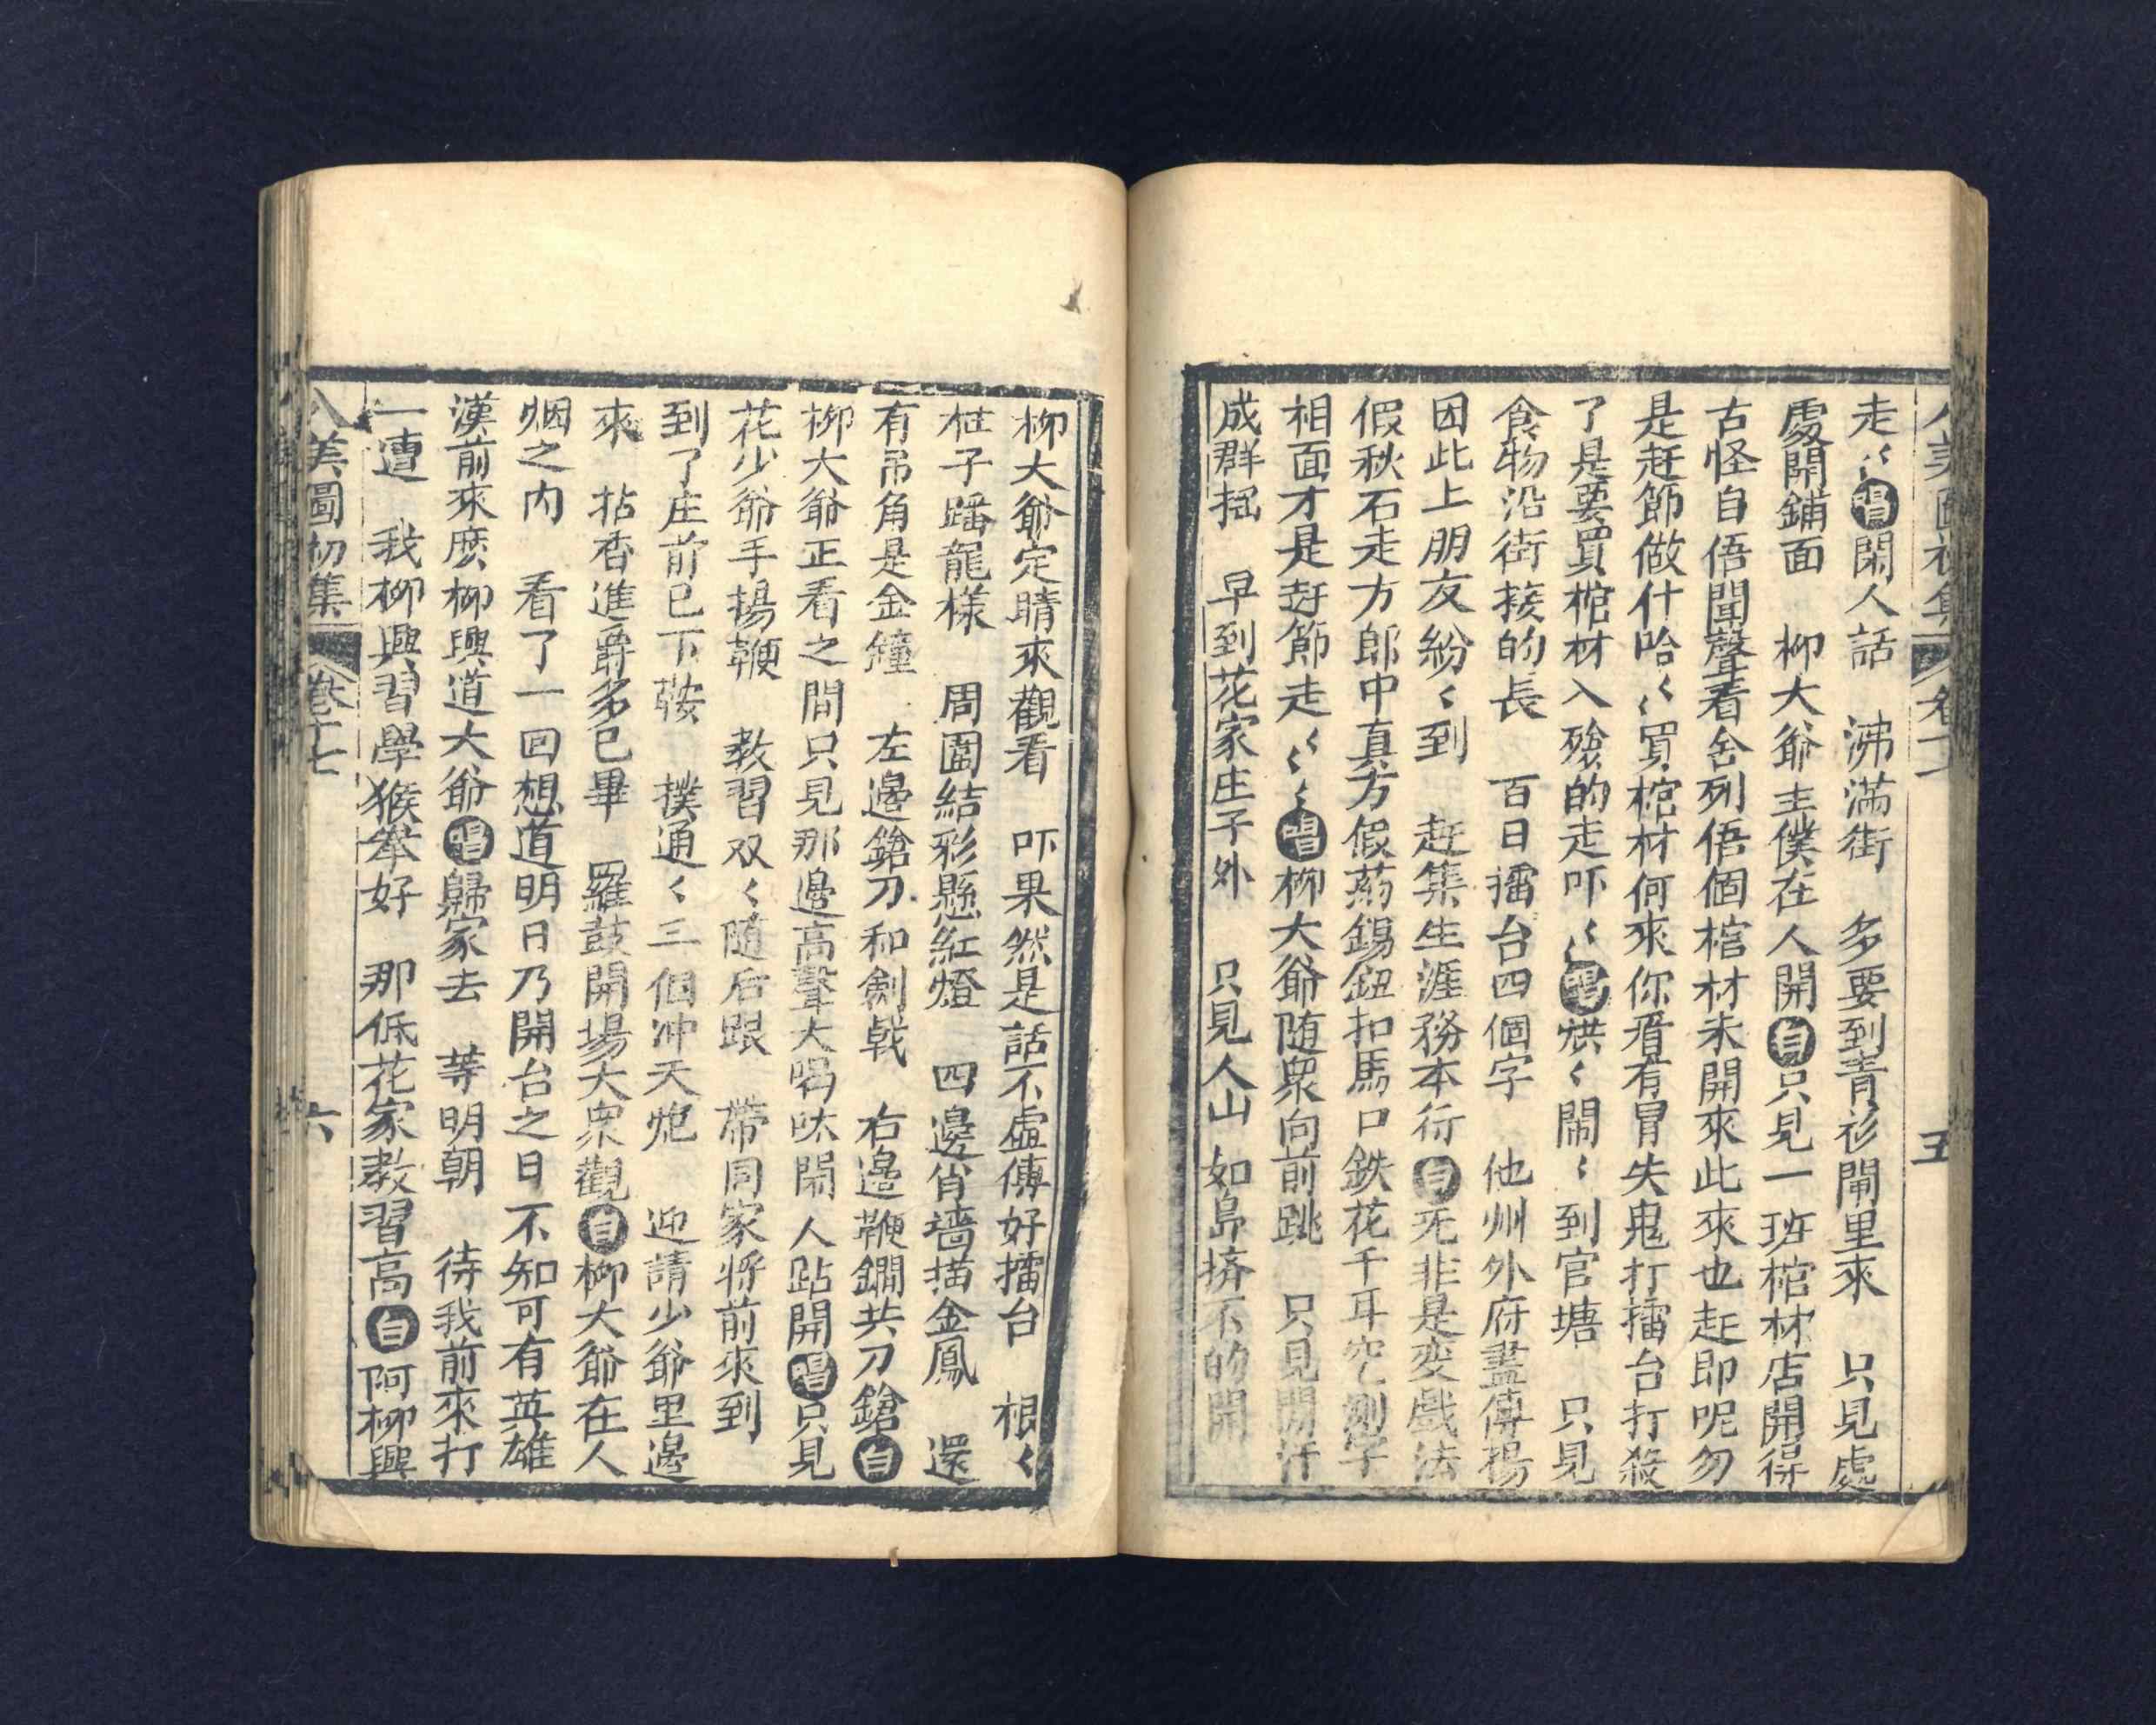 走〻唱閑人話　沸滿街　多要到青衫閘里來　只見處
處開鋪面　柳大爺主僕在人開白只見一班棺材店開得
古怪自俉聞聲看舍列俉個棺材未開來此來也赶即呢勿
是赶節做什哈〻買棺材何來你看有冒失鬼打擂台打殺
了是要買棺材入殮的走吓〻唱烘〻鬧〻到官塘　只見
食物沿街接的長　百日擂台四個字　他州外府盡傳揚
因此上朋友紛〻到　赶集生涯務本行白无非是变戲法
假秋石走方郎中真方假葯錫鈕扣馬口鉄花千耳空
相面才是赶節走〻〻唱柳大爺随衆向前跳　只見閑汗
成群摇　早到花家庄子外　只見人山如島挤不的開
八美圖初集　卷十七　五
柳大爺定睛來觀看　吓果然是話不虛傳好擂台　根〻
柱子蟠龍樣　周圍結彩懸紅燈　四邊肖墻描金鳳　還
有吊角是金鐘　左邊鎗刀和劍戟　右邊鞭鐗共刀鎗白
柳大爺正看之間只見那邊高聲大喝呔閑人跕開唱只見
花少爺手揚鞭　教習双〻随后跟　帶同家將前來到
到了庄前已下鞍　撲通〻三個冲天炮　迎請少爺里邊
來　拈香進爵多已畢　羅鼓開場大衆觀白柳大爺在人
烟之内　看了一回想道明日乃開台之日不知可有英雄
漢前來麽柳興道大爺唱歸家去　等明朝　待我前來打
一遭　我柳興習學猴拳好　那低花家教習高白阿柳興
八美圖初集　卷十七　六